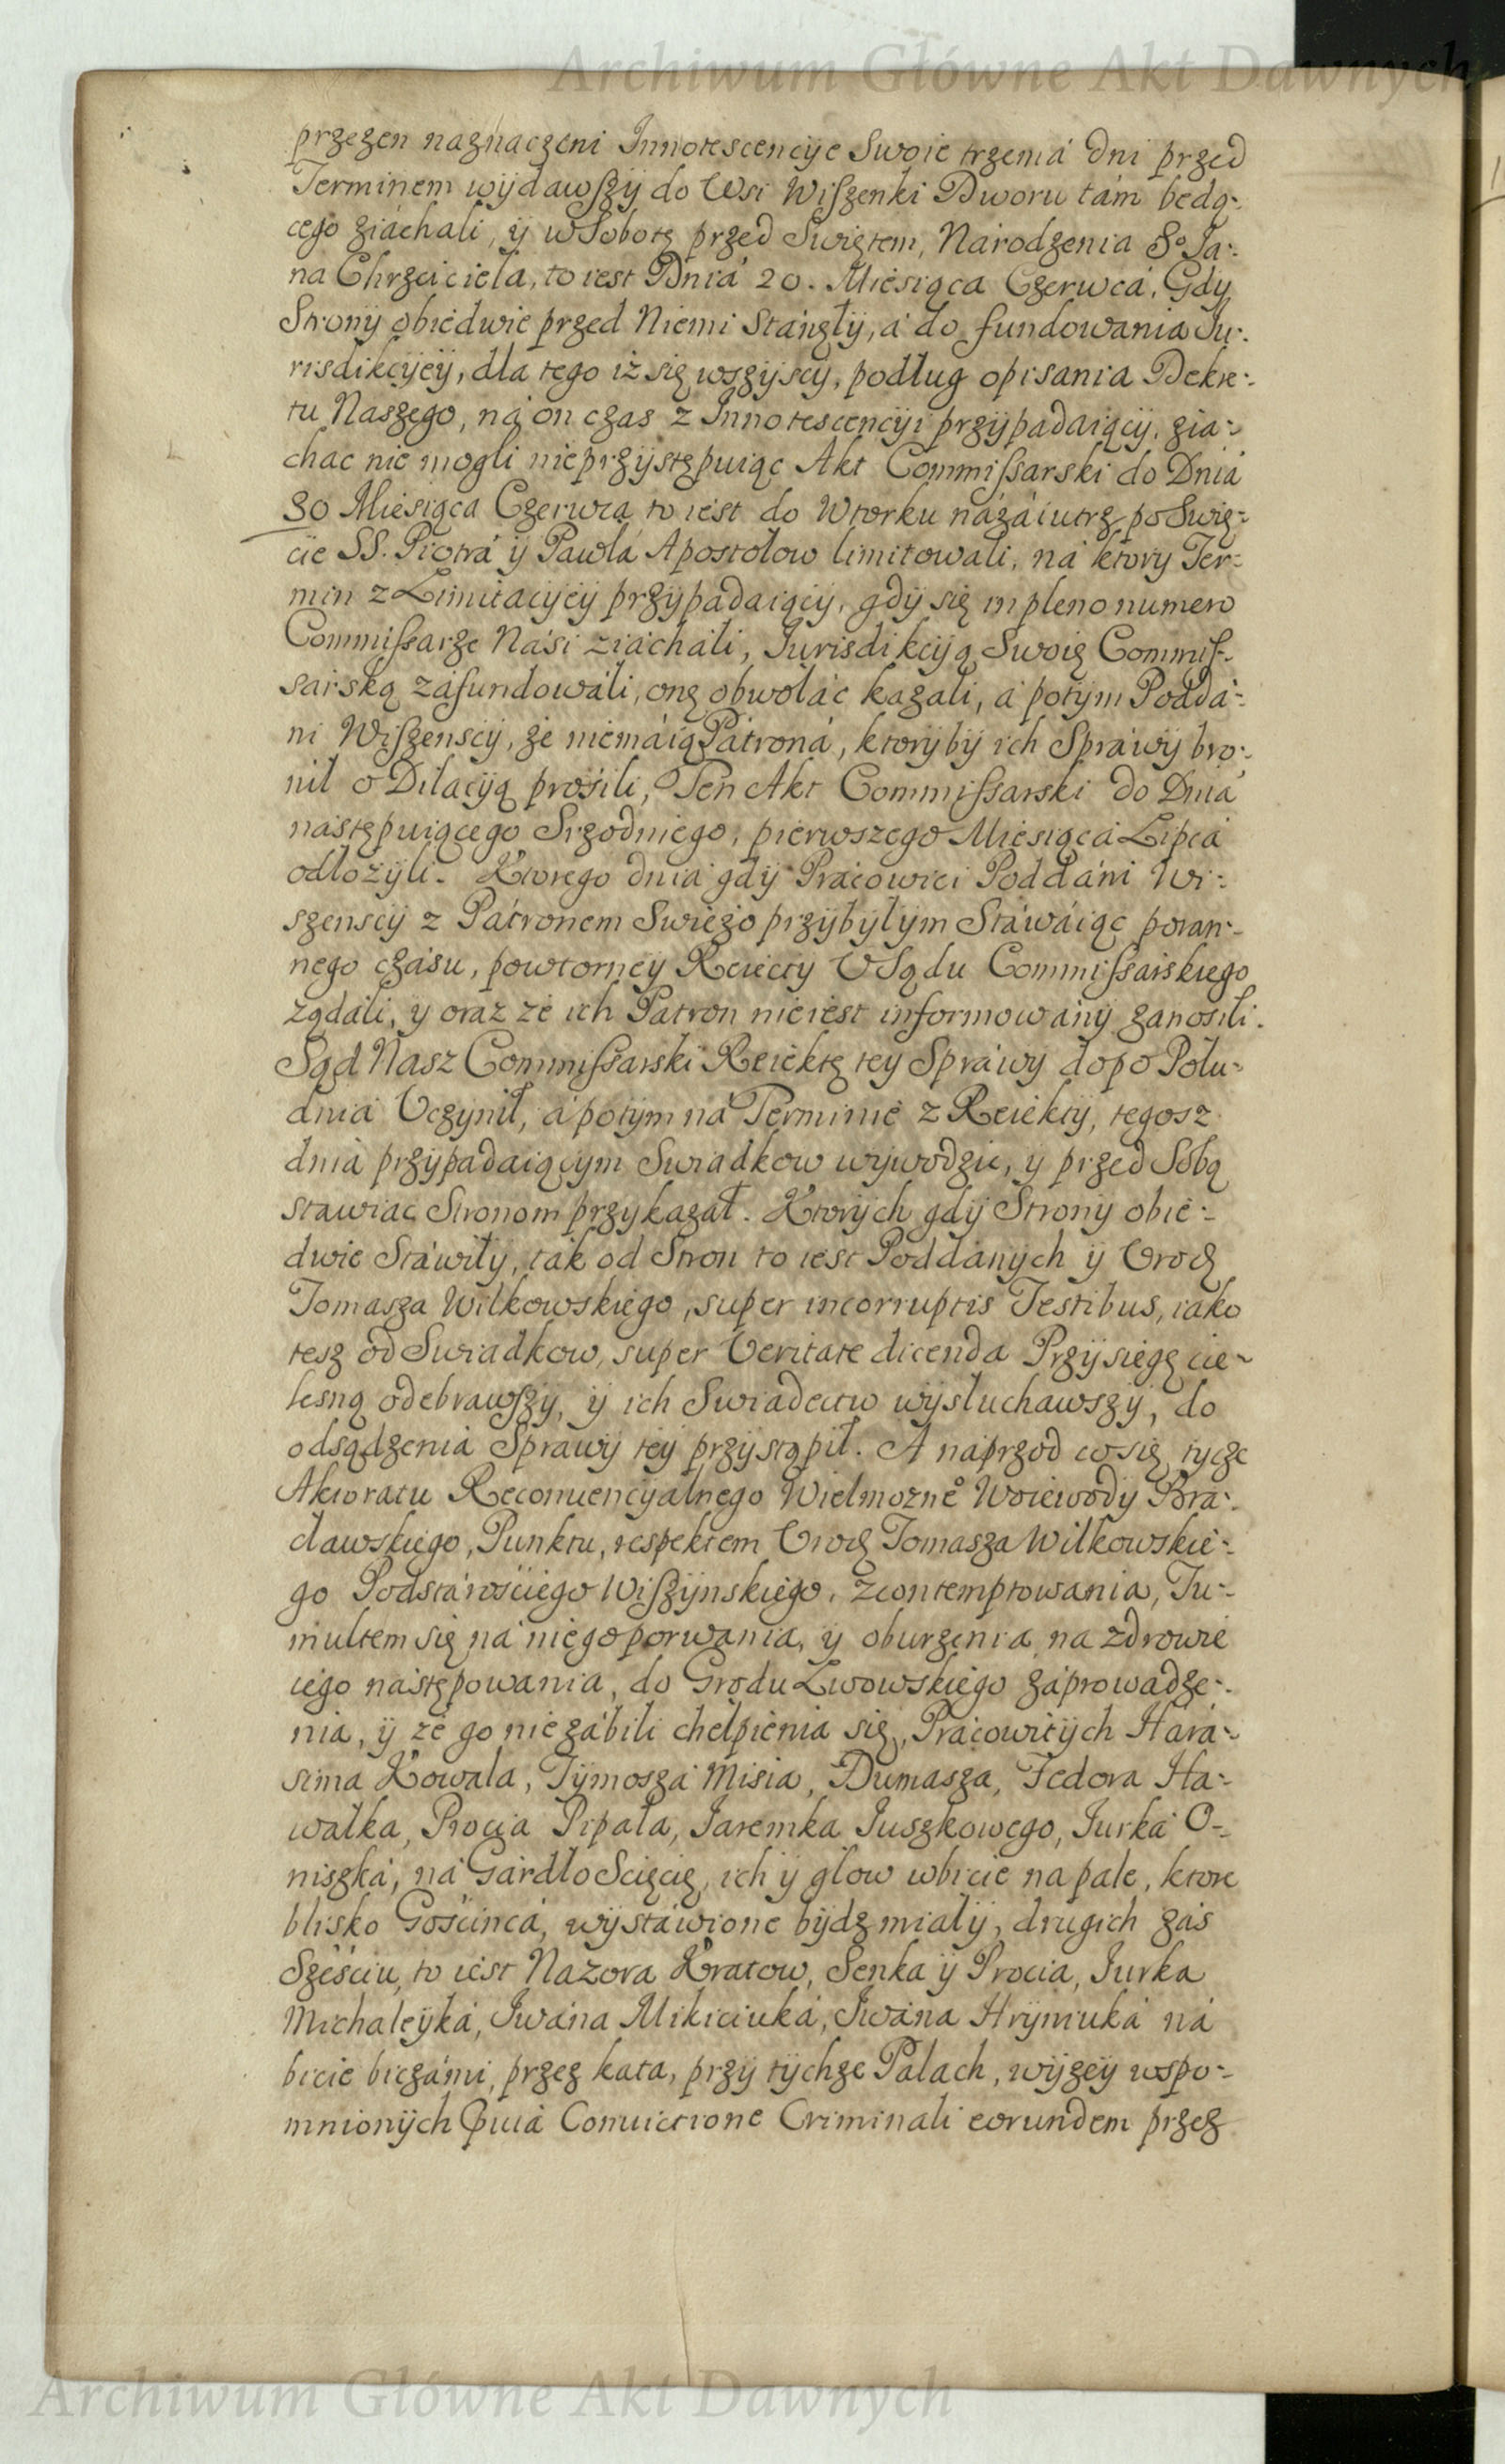 Archiwum Główne Akt Dawnych
przezen naznaczeni Innotescencÿe Swoie trzemá dni przed
Terminem wÿdawszÿ do Wsi Wiszenki Dworu tám będą-
cego ziáchali, ÿ w Sobotę przed Swiętem, Národzenia So Ja-
na Chrzciciela, to iest Dniá 20. Miesiąca Czerwcá, Gdÿ
Stronÿ obiedwie przed Niemi Stánęłÿ, á do fundowania Ju-
risdikcÿeÿ, dla tego iż się wszÿscÿ, podług opisania Dekre-
tu Naszego, ná on czas z Innotescencÿi przÿpadaiącÿ, zia-
chac nie mogli nieprzÿstępuiąc Akt Commissarski do Dniá
30 Miesiąca Czerwca to iest do Wtorku názáiutrz po Swię-
cie SS. Piotrá ÿ Páwłá Apostołow limitowali, ná ktory Ter-
min z Limitacÿeÿ przÿpadaiącÿ, gdÿ się in pleno numero
Commissarze Nási ziáchali, Jurisdikcÿą Swoię Commis-
sarską záfundowáli, onę obwołác kazali, á potÿm Poddá-
ni Wiszenscÿ, że niemáią Pátroná, ktorÿbÿ ich Spráwÿ bro-
nił o Dilacÿą prosili, Ten Akt Commissarski do Dniá
następuiącego Srzodniego, pierwszego Miesiącá Lipcá
odłożÿli. Ktorego dniá gdÿ Prácowici Poddáni Wi-
szenscÿ z Pátronem Swieżo przÿbÿłÿm Stáwáiąc poran-
nego czásu, powtorneÿ Reiectÿ V Sądu Commissarskiego
żądáli, y oraz że ich Patron nieiest informowánÿ zanosili.
Sąd Nasz Commissarski Reiektę teÿ Spráwÿ do po Połu-
dniá Vczÿnił, á potÿm ná Terminie z Reiektÿ, tegosz
dniá przÿpadaiącÿm Swiadkow wÿwodzic, ÿ przed Sobą
stawiac Stronom przÿkazał. Ktorÿch gdÿ Stronÿ obie-
dwie Stáwiłÿ, ták od Stron to iest Poddánÿch ÿ Vrodz
Tomasza Wilkowskiego, super incorruptis Testibus, iáko
tesz od Swiadkow, super Veritate dicenda Przÿsięgę cie-
lesną odebrawszÿ, ÿ ich Swiadectw wÿsłuchawszÿ, do
odsądzeniá Sprawÿ teÿ przÿstąpił. A naprzod co się tÿcze
Aktoratu Reconuencÿalnego Wielmożneo Woiewodÿ Bra-
cławskiego, Punktu, respektem Vrodz Tomasza Wilkowskie-
go Podstárosciego Wiszÿnskiego, zcontemptowania, Tu-
multem się ná niego porwania, ÿ oburzenia, na zdrowie
iego nástępowania, do Grodu Lwowskiego záprowadze-
nia, ÿ że go niezábili chełpienia się, Prácowitÿch Hará-
sima Kowala, Tÿmoszá Misia, Dumasza, Fedora Ha-
wałka, Procia Pipała, Jaremka Juszkowego, Jurká O-
niszká, ná Gárdło Scięcię, ich ÿ głow wbicie na pale, ktore
blisko Gościncá, wÿstáwione bÿdz miałÿ, drugich zás
Sześciu, to iest Nazora Kratow, Senka ÿ Procia, Jurka
Michaleÿká, Jwáná Mikiciuká, Jwáná Hrÿniuká ná
bicie biczámi, przez kata, przÿ tÿchze Palach, wÿżeÿ wspo-
mnionÿch Conuictione Criminali eorundem przez
Archiwum Główne Akt Dawnych